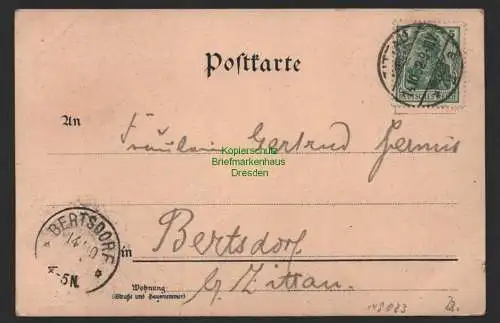 Postkarte
An
Fräulein Gertrud Hermis
Kopierschutz
Briefmarkenhaus
Dresden
BERTSDORF
in
Bertsdorf
b/ Zittau.
Wohnung
(Straße und Hausnummer)